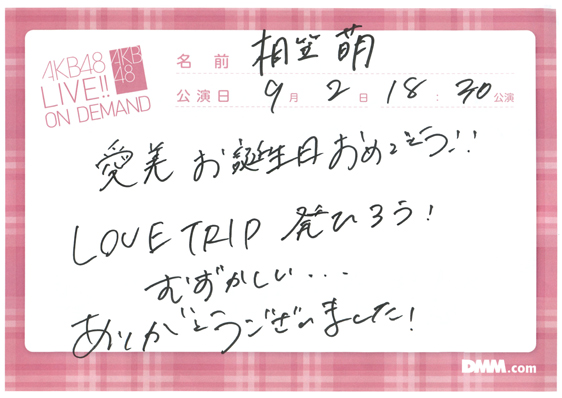 AKB48
LIVE!!
ON DEMAND
AKB
48
名前 相笠萌
公演日 9月2日 18:30公演
愛美 お誕生日おめでとう!!
LOVE TRIP 発ひろう!
むずかしい...
ありがとうございました!
DMM.com